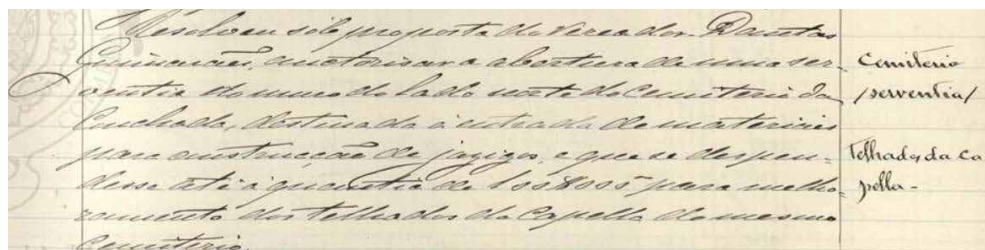 Resolveu sob proposta do Vereador Dantas
Guimarães, auctorisar a abertura de uma ser-
ventia no muro do lado norte do Cemiterio da
Conchada, destinada á entrada de materiaes
para construcção de jazigos, e que se despen-
desse até á quantia de 100$000 para melho-
ramento dos telhados da Capella do mesmo
Cemiterio.
Cemiterio
/serventia/
Telhados da Ca
pella-